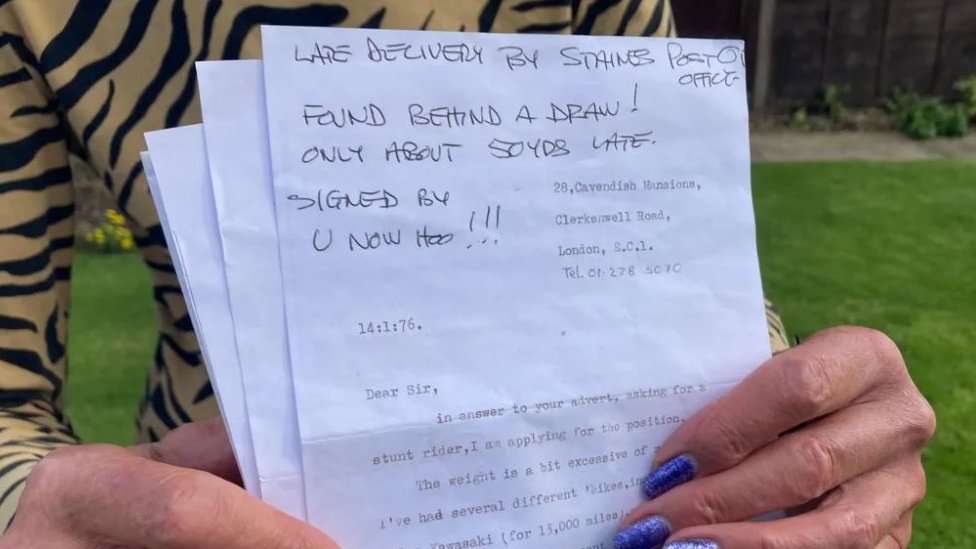 LATE DELIVERY BY STAINES POST
OFFICE
FOUND BEHIND A DRAW!
ONLY ABOUT 50YDS LATE.
SIGNED BY
U NOW HOO!!!
28,Cavendish Mansions,
Clerkenwell Road,
London, E.C.1.
Tel. 01-278 5070
14:1:76.
Dear Sir,
in answer to your advert, asking for a
stunt rider,I am applying for the position.
The weight is a bit excessive of
i've had several different 'bikes,
Kawasaki (for 13,000 miles).